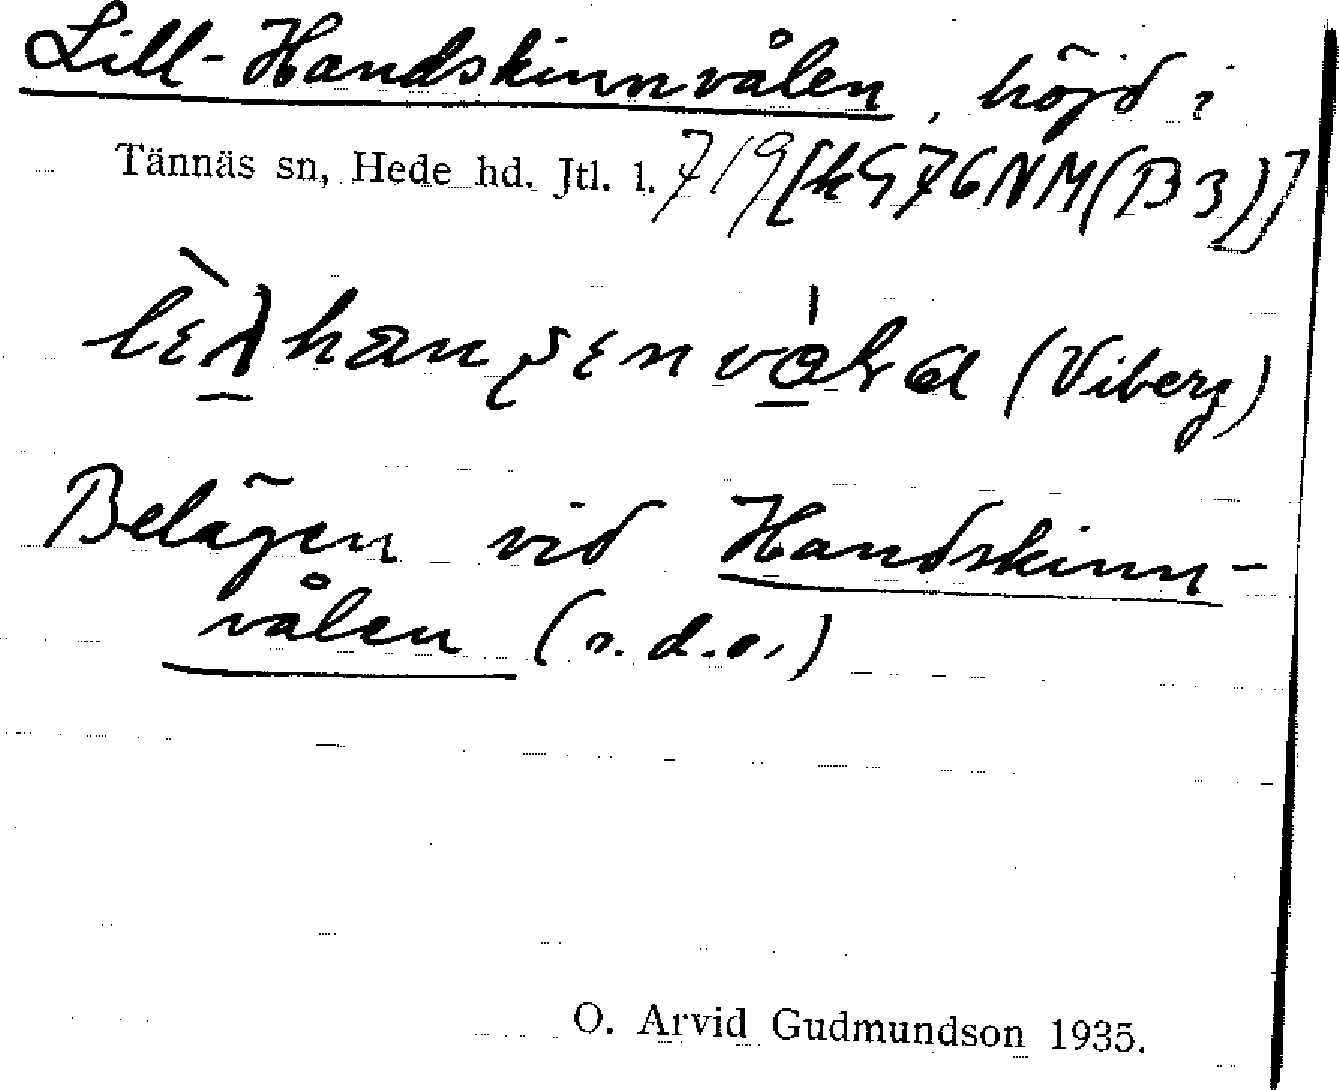 Lill-Handskinnvålen, höjd i
Tännäs sn, Hede hd. Jtl. l. 7/9 [k976NM(B3)]
(Viberg)
Belägen vid Handskinn-
vålen (s.d.o.)
O. Arvid Gudmundson 1935.